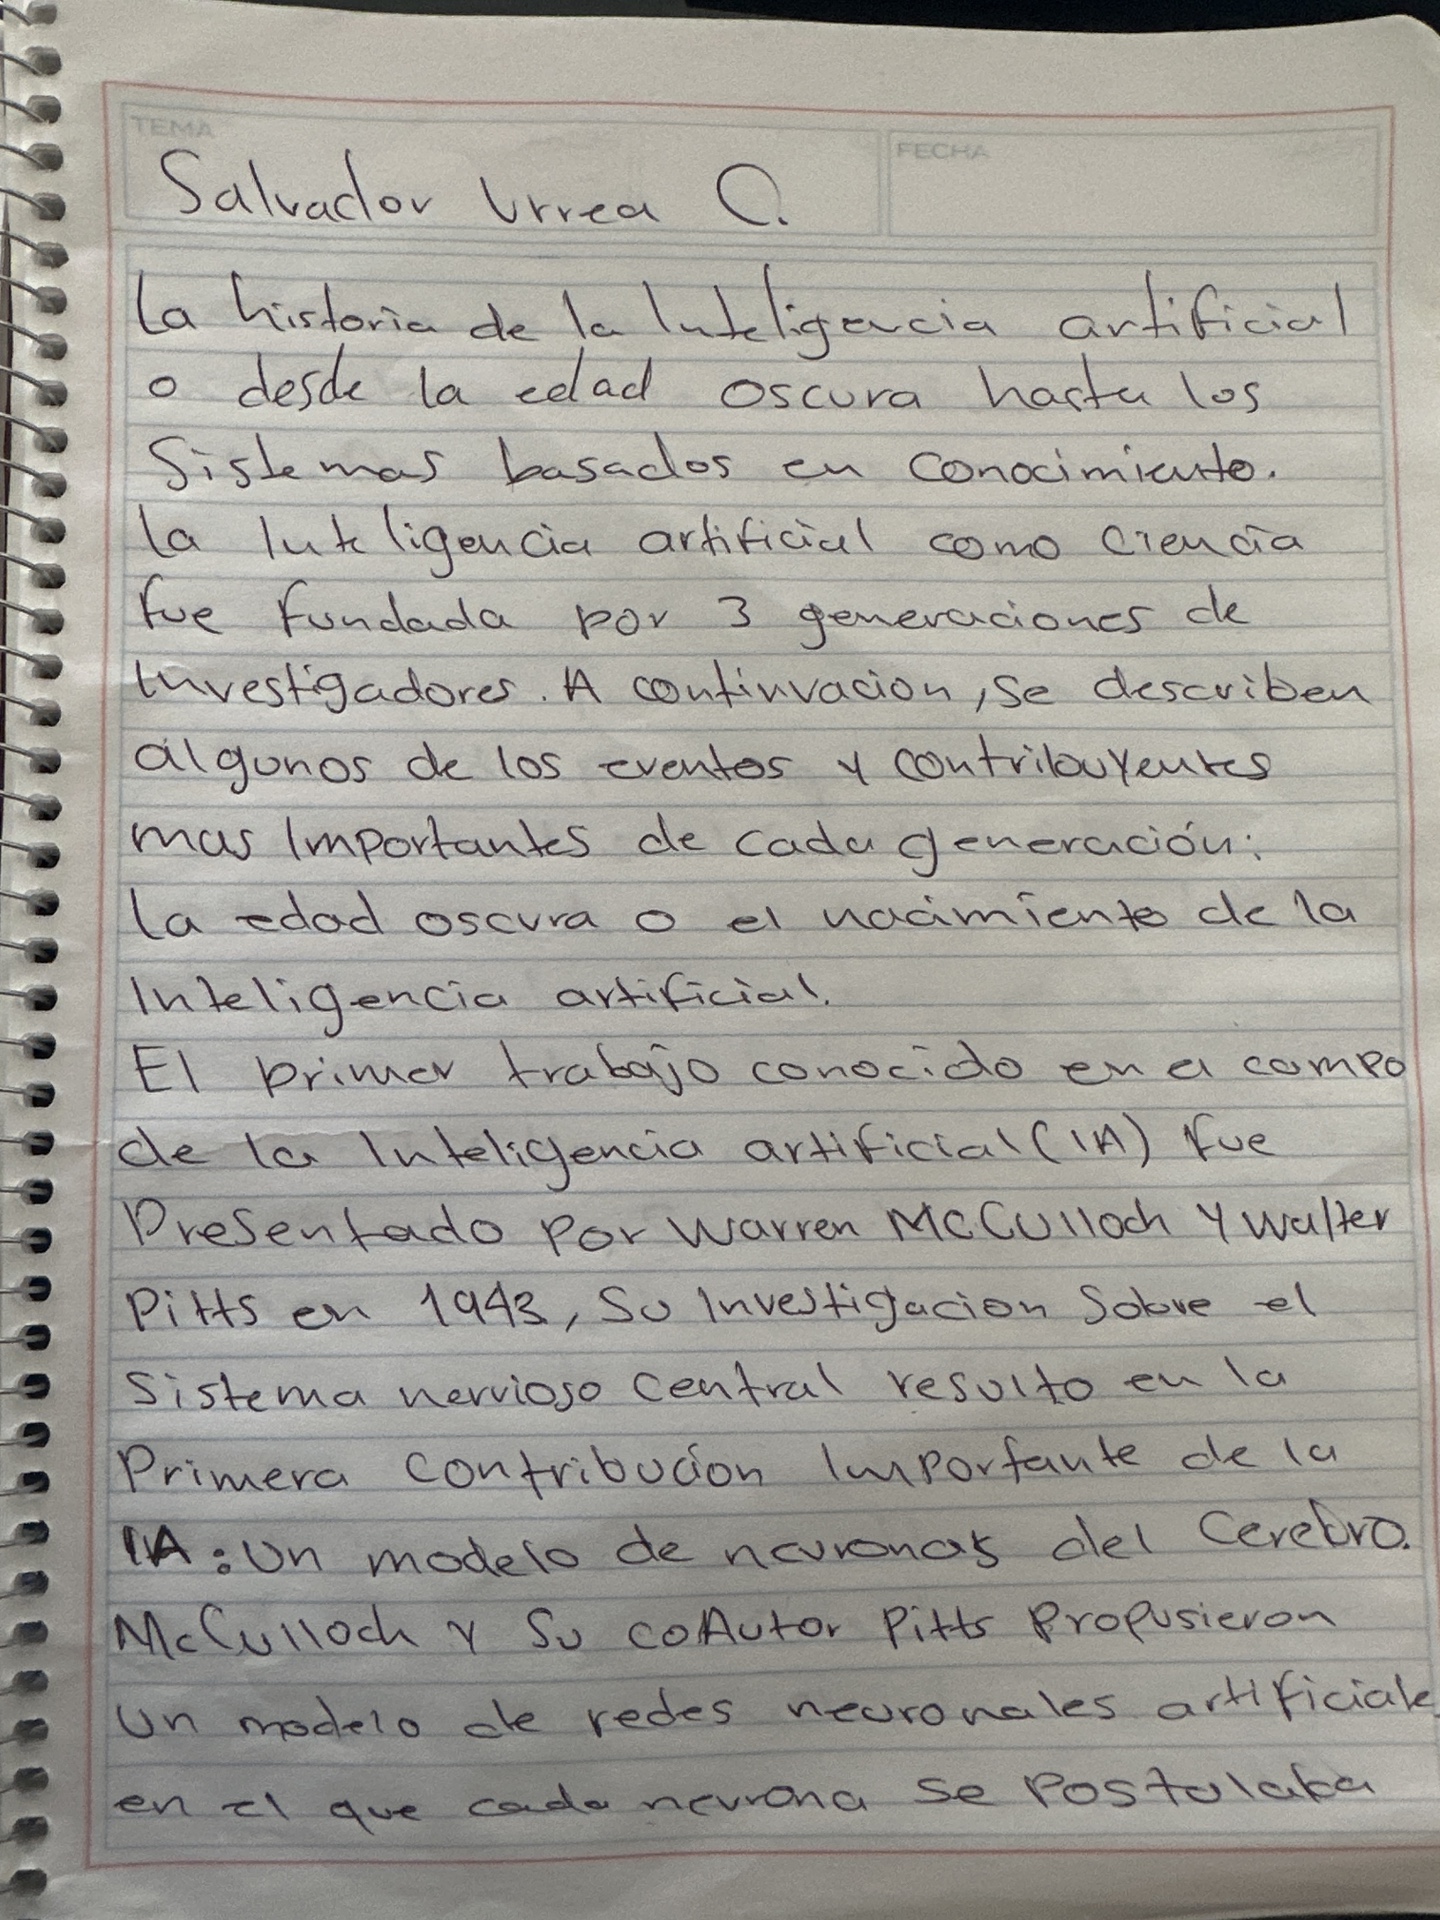 TEMA
FECHA
Salvador Urrea C.
La historia de la Inteligencia artificial
o desde la edad oscura hasta los
Sistemas basados en conocimiento.
La Inteligencia artificial como ciencia
fue fundada por 3 generaciones de
Investigadores. A continuacion, se describen
algunos de los eventos y contribuyentes
mas Importantes de cada generación:
La edad oscura o el nacimiento de la
Inteligencia artificial.
El primer trabajo conocido en el campo
de la Inteligencia artificial (IA) fue
Presentado por Warren McCulloch y Walter
Pitts en 1943, Su Investigacion Sobre el
Sistema nervioso central resulto en la
Primera contribución Importante de la
IA: Un modelo de neuronas del Cerebro.
McCulloch y Su coAutor Pitts Propusieron
Un modelo de redes neuronales artificiale
en el que cada neurona se Postulaba